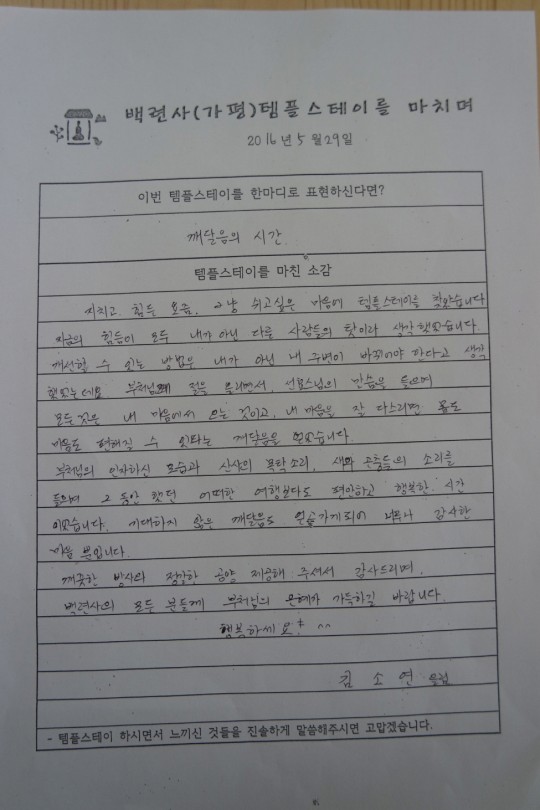 백련사(가평)템플스테이를 마치며
2016년 5월29일
이번 템플스테이를 한마디로 표현하신다면?
깨달음의 시간
템플스테이를 마친 소감
지치고 힘든 요즘, 그냥 쉬고싶은 마음에 템플스테이를 찾았습니다
지금의 힘듦이 모두 내가 아닌 다른 사람들의 탓이라 생각했었습니다.
개선할 수 있는 방법은 내가 아닌 내 주변이 바뀌어야 한다고 생각
했었는데요 부처님께 절을 올리면서, 스님의 말씀을 들으며
모든것은 내 마음에서 오는 것이고, 내 마음을 잘 다스리면 몸도
마음도 편해질 수 있다는 깨달음을 얻었습니다.
부처님의 인자하신 모습과 산사의 목탁소리, 새와 곤충들의 소리를
들으며 그 동안 했던 어떠한 여행보다도 편안하고 행복한 시간
이었습니다. 기대하지 않은 깨달음도 얻을가게되어 너무나 감사한
마음 뿐입니다.
깨끗한 방사와 정갈한 공양 제공해 주셔서 감사드리며,
백련사의 모든 분들께 부처님의 은혜가 가득하길 바랍니다.
행복하세요! ^^
김 소 연 올림
- 템플스테이 하시면서 느끼신 것들을 진솔하게 말씀해주시면 고맙겠습니다.